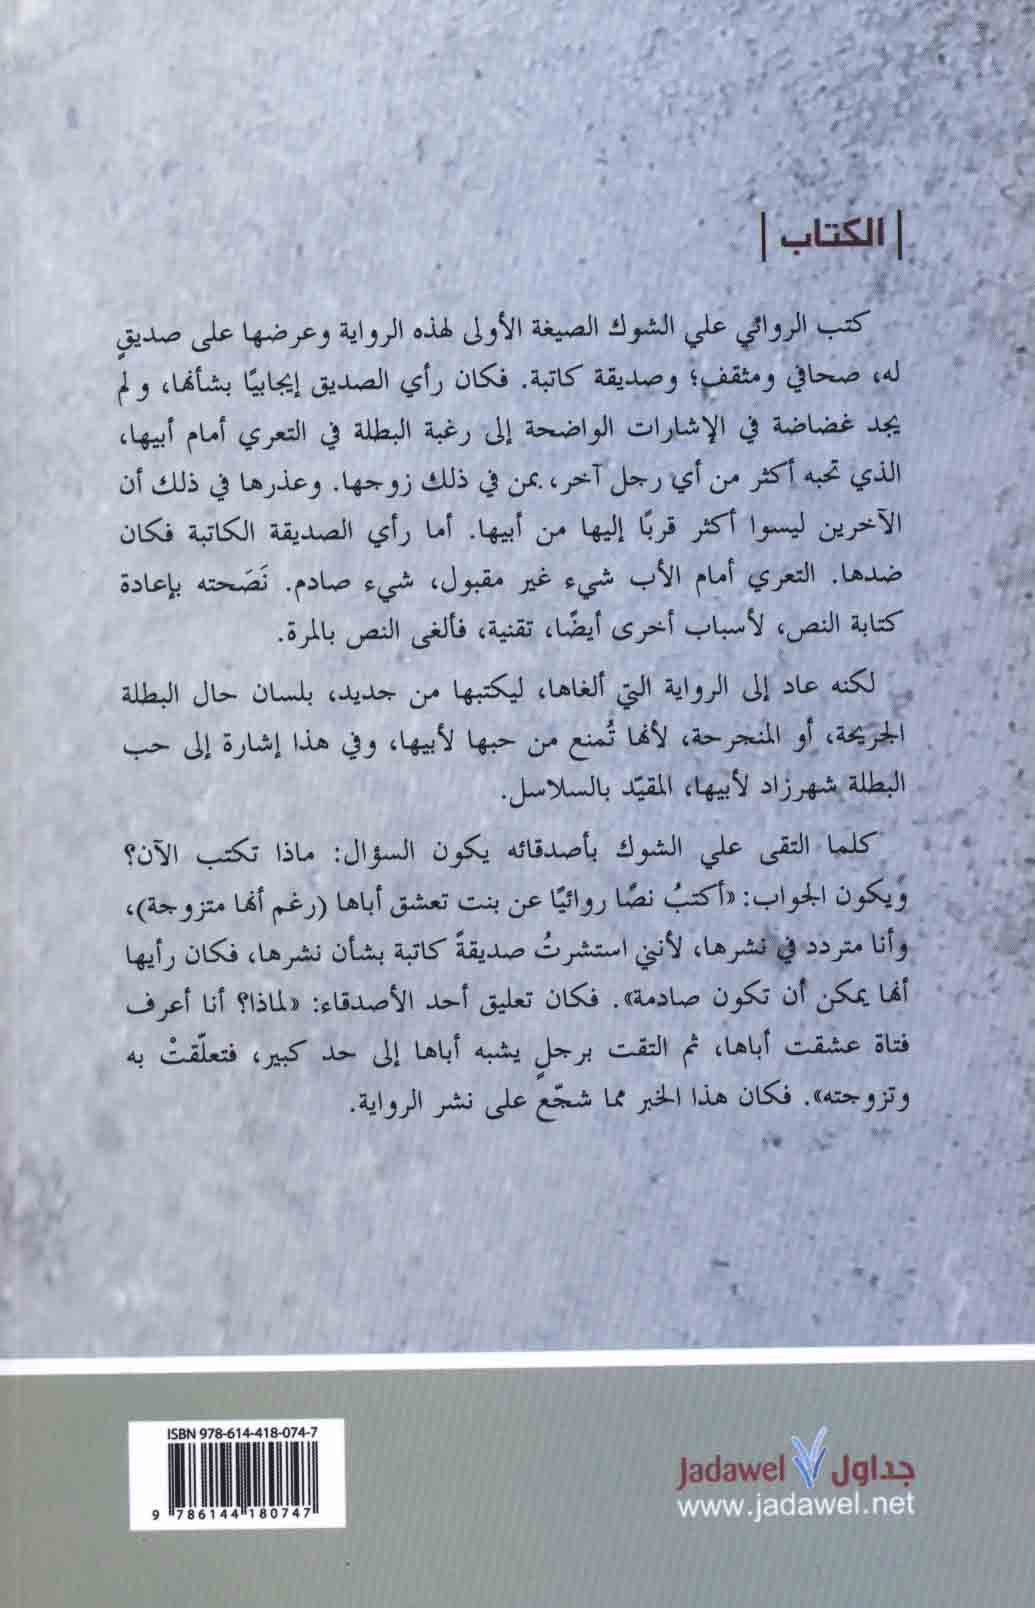 الكتاب
كتب الروائي علي الشوك الصيغة الأولى لهذه الرواية وعرضها على صديقٍ
له، صحافي ومثقف؛ وصديقة كاتبة. فكان رأي الصديق إيجابيًا بشأنها، ولم
يجد غضاضة في الإشارات الواضحة إلى رغبة البطلة في التعري أمام أبيها،
الذي تحبه أكثر من أي رجل آخر، بمن في ذلك زوجها. وعذرها في ذلك أن
الآخرين ليسوا أكثر قربًا إليها من أبيها. أما رأي الصديقة الكاتبة فكان
ضدها. التعري أمام الأب شيء غير مقبول، شيء صادم. نَصَحته بإعادة
كتابة النص، لأسباب أخرى أيضًا، تقنية، فألغى النص بالمرة.
لكنه عاد إلى الرواية التي ألغاها، ليكتبها من جديد، بلسان حال البطلة
الجريحة، أو المنجرحة، لأنها تُمنع من حبها لأبيها، وفي هذا إشارة إلى حب
البطلة شهرزاد لأبيها، المقيّد بالسلاسل.
كلما التقى علي الشوك بأصدقائه يكون السؤال: ماذا تكتب الآن؟
ويكون الجواب: «أكتبُ نصًا روائيًا عن بنت تعشق أباها (رغم أنها متزوجة)،
وأنا متردد في نشرها، لأنني استشرتُ صديقةً كاتبة بشأن نشرها، فكان رأيها
أنها يمكن أن تكون صادمة». فكان تعليق أحد الأصدقاء: «لماذا؟ أنا أعرف
فتاة عشقت أباها، ثم التقت برجلٍ يشبه أباها إلى حد كبير، فتعلّقتْ به
وتزوجته». فكان هذا الخبر مما شجّع على نشر الرواية.
ISBN 978-614-418-074-7
9 786144 180747
Jadawel جداول
www.jadawel.net